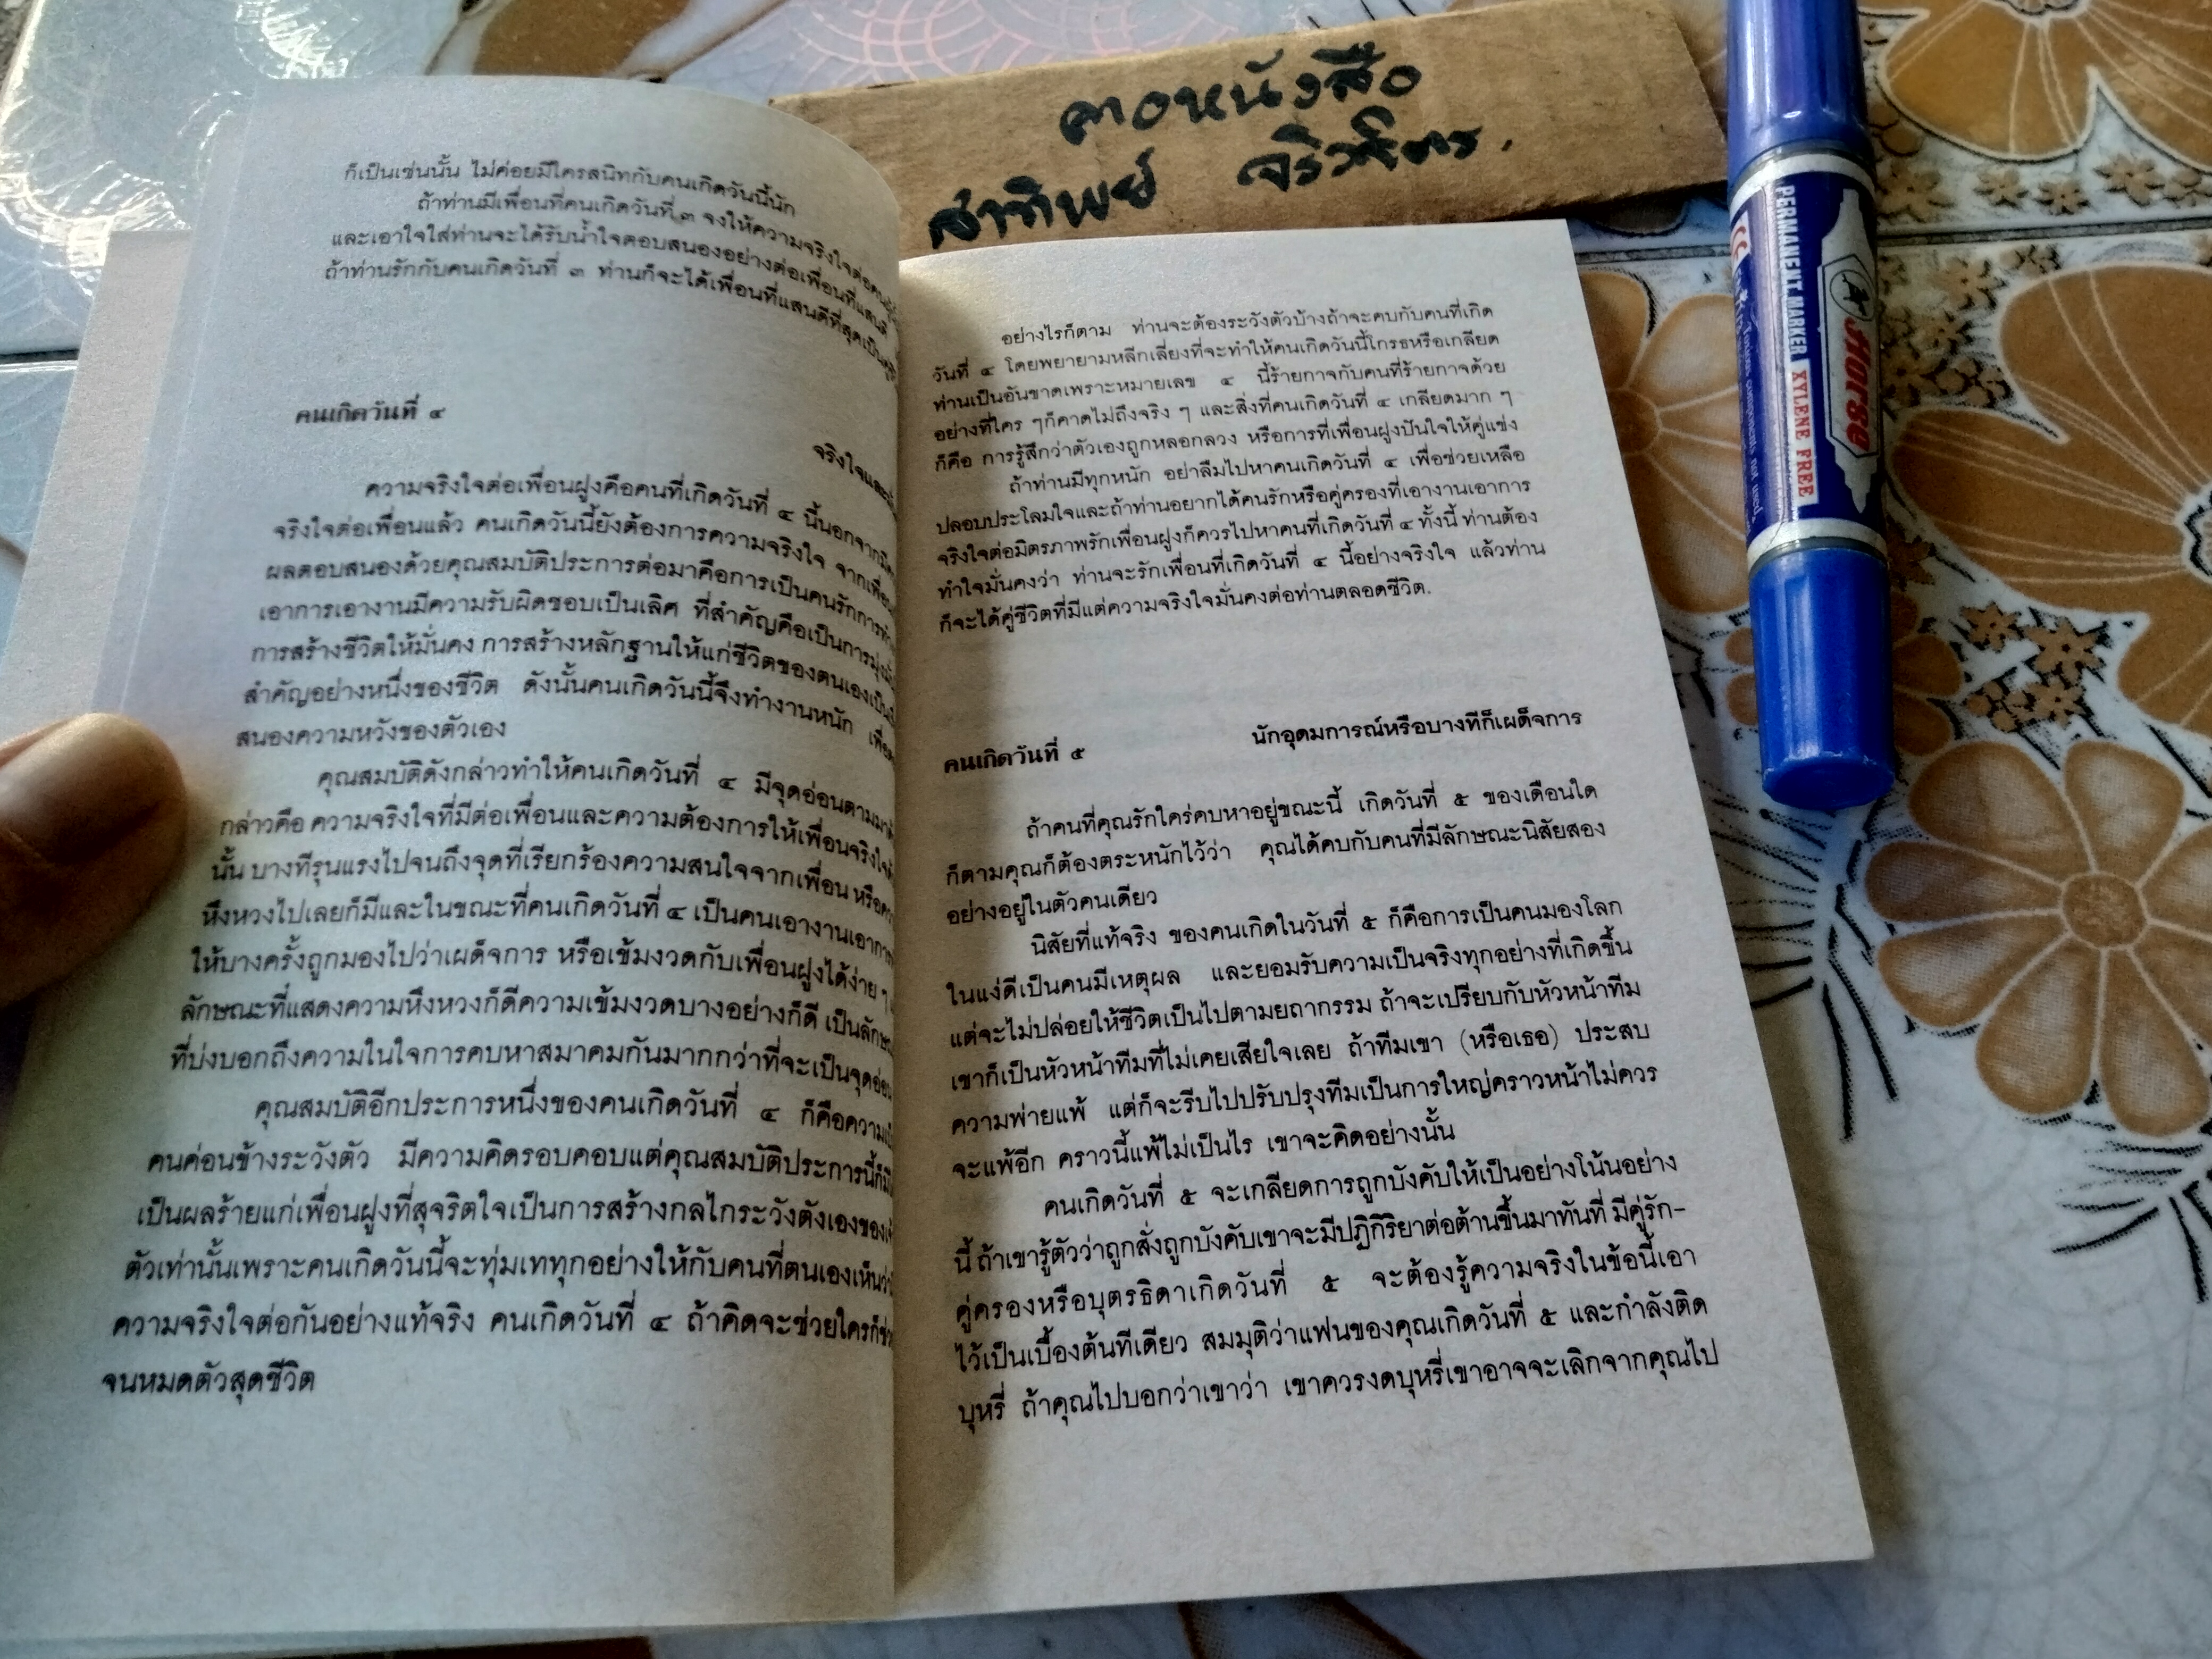 คอหนังสือ
สาทิพย์ จริวจิตร.
PERMANENT MARKER XYLENE FREE
Horse
ก็เป็นเช่นนั้น ไม่ค่อยมีใครสนิทกับคนเกิดวันนี้นัก
ถ้าท่านมีเพื่อนที่คนเกิดวันที่ ๓ จงให้ความจริงใจต่อคน
และเอาใจใส่ท่านจะได้รับน้ำใจตอบสนองอย่างต่อเพื่อนที่แสนดี
ถ้าท่านรักกับคนเกิดวันที่ ๓ ท่านก็จะได้เพื่อนที่แสนดีที่สุดเป็น
คนเกิดวันที่ ๔
จริงใจและ
ความจริงใจต่อเพื่อนฝูงคือคนที่เกิดวันที่ ๔ นี้นอกจาก
จริงใจต่อเพื่อนแล้ว คนเกิดวันนี้ยังต้องการความจริงใจ จากเพื่อน
ผลตอบสนองด้วยคุณสมบัติประการต่อมาคือการเป็นคนรักการ
เอาการเอางานมีความรับผิดชอบเป็นเลิศ ที่สำคัญคือเป็นการมุ่ง
การสร้างชีวิตให้มั่นคง การสร้างหลักฐานให้แก่ชีวิตของตนเองเป็น
สำคัญอย่างหนึ่งของชีวิต ดังนั้นคนเกิดวันนี้จึงทำงานหนัก
สนองความหวังของตัวเอง
คุณสมบัติดังกล่าวทำให้คนเกิดวันที่ ๔ มีจุดอ่อนตามมา
กล่าวคือ ความจริงใจที่มีต่อเพื่อนและความต้องการให้เพื่อนจริงใจ
นั้น บางทีรุนแรงไปจนถึงจุดที่เรียกร้องความสนใจจากเพื่อน หรือ
หึงหวงไปเลยก็มีและในขณะที่คนเกิดวันที่ ๔ เป็นคนเอางานเอาการ
ให้บางครั้งถูกมองไปว่าเผด็จการ หรือเข้มงวดกับเพื่อนฝูงได้ง่าย ๆ
ลักษณะที่แสดงความหึงหวงก็ดีความเข้มงวดบางอย่างก็ดี เป็นลักษณะ
ที่บ่งบอกถึงความในใจการคบหาสมาคมกันมากกว่าที่จะเป็นจุดอ่อน
คุณสมบัติอีกประการหนึ่งของคนเกิดวันที่ ๔ ก็คือความ
คนค่อนข้างระวังตัว มีความคิดรอบคอบแต่คุณสมบัติประการนี้ก็
เป็นผลร้ายแก่เพื่อนฝูงที่สุจริตใจเป็นการสร้างกลไกระวังตังเองของ
ตัวเท่านั้นเพราะคนเกิดวันนี้จะทุ่มเททุกอย่างให้กับคนที่ตนเองเห็นว่า
ความจริงใจต่อกันอย่างแท้จริง คนเกิดวันที่ ๔ ถ้าคิดจะช่วยใครก็
จนหมดตัวสุดชีวิต
อย่างไรก็ตาม ท่านจะต้องระวังตัวบ้างถ้าจะคบกับคนที่เกิด
วันที่ ๔ โดยพยายามหลีกเลี่ยงที่จะทำให้คนเกิดวันนี้โกรธหรือเกลียด
ท่านเป็นอันขาดเพราะหมายเลข ๔ นี้ร้ายกาจกับคนที่ร้ายกาจด้วย
อย่างที่ใคร ๆก็คาดไม่ถึงจริง ๆ และสิ่งที่คนเกิดวันที่ ๔ เกลียดมาก ๆ
ก็คือ การรู้สึกว่าตัวเองถูกหลอกลวง หรือการที่เพื่อนฝูงปันใจให้คู่แข่ง
ถ้าท่านมีทุกหนัก อย่าลืมไปหาคนเกิดวันที่ ๔ เพื่อช่วยเหลือ
ปลอบประโลมใจและถ้าท่านอยากได้คนรักหรือคู่ครองที่เอางานเอาการ
จริงใจต่อมิตรภาพรักเพื่อนฝูงก็ควรไปหาคนที่เกิดวันที่ ๔ ทั้งนี้ ท่านต้อง
ทำใจมั่นคงว่า ท่านจะรักเพื่อนที่เกิดวันที่ ๔ นี้อย่างจริงใจ แล้วท่าน
ก็จะได้คู่ชีวิตที่มีแต่ความจริงใจมั่นคงต่อท่านตลอดชีวิต.
นักอุดมการณ์หรือบางทีก็เผด็จการ
คนเกิดวันที่ ๕
ถ้าคนที่คุณรักใคร่คบหาอยู่ขณะนี้ เกิดวันที่ ๕ ของเดือนใด
ก็ตามคุณก็ต้องตระหนักไว้ว่า คุณได้คบกับคนที่มีลักษณะนิสัยสอง
อย่างอยู่ในตัวคนเดียว
นิสัยที่แท้จริง ของคนเกิดในวันที่ ๕ ก็คือการเป็นคนมองโลก
ในแง่ดีเป็นคนมีเหตุผล และยอมรับความเป็นจริงทุกอย่างที่เกิดขึ้น
แต่จะไม่ปล่อยให้ชีวิตเป็นไปตามยถากรรม ถ้าจะเปรียบกับหัวหน้าทีม
เขาก็เป็นหัวหน้าทีมที่ไม่เคยเสียใจเลย ถ้าทีมเขา (หรือเธอ) ประสบ
ความพ่ายแพ้ แต่ก็จะรีบไปปรับปรุงทีมเป็นการใหญ่คราวหน้าไม่ควร
จะแพ้อีก คราวนี้แพ้ไม่เป็นไร เขาจะคิดอย่างนั้น
คนเกิดวันที่ ๕ จะเกลียดการถูกบังคับให้เป็นอย่างโน้นอย่าง
นี้ ถ้าเขารู้ตัวว่าถูกสั่งถูกบังคับเขาจะมีปฏิกิริยาต่อต้านขึ้นมาทันที่ มีคู่รัก-
คู่ครองหรือบุตรธิดาเกิดวันที่ ๕ จะต้องรู้ความจริงในข้อนี้เอา
ไว้เป็นเบื้องต้นทีเดียว สมมุติว่าแฟนของคุณเกิดวันที่ ๕ และกำลังติด
บุหรี่ ถ้าคุณไปบอกว่าเขาว่า เขาควรงดบุหรี่เขาอาจจะเลิกจากคุณไป